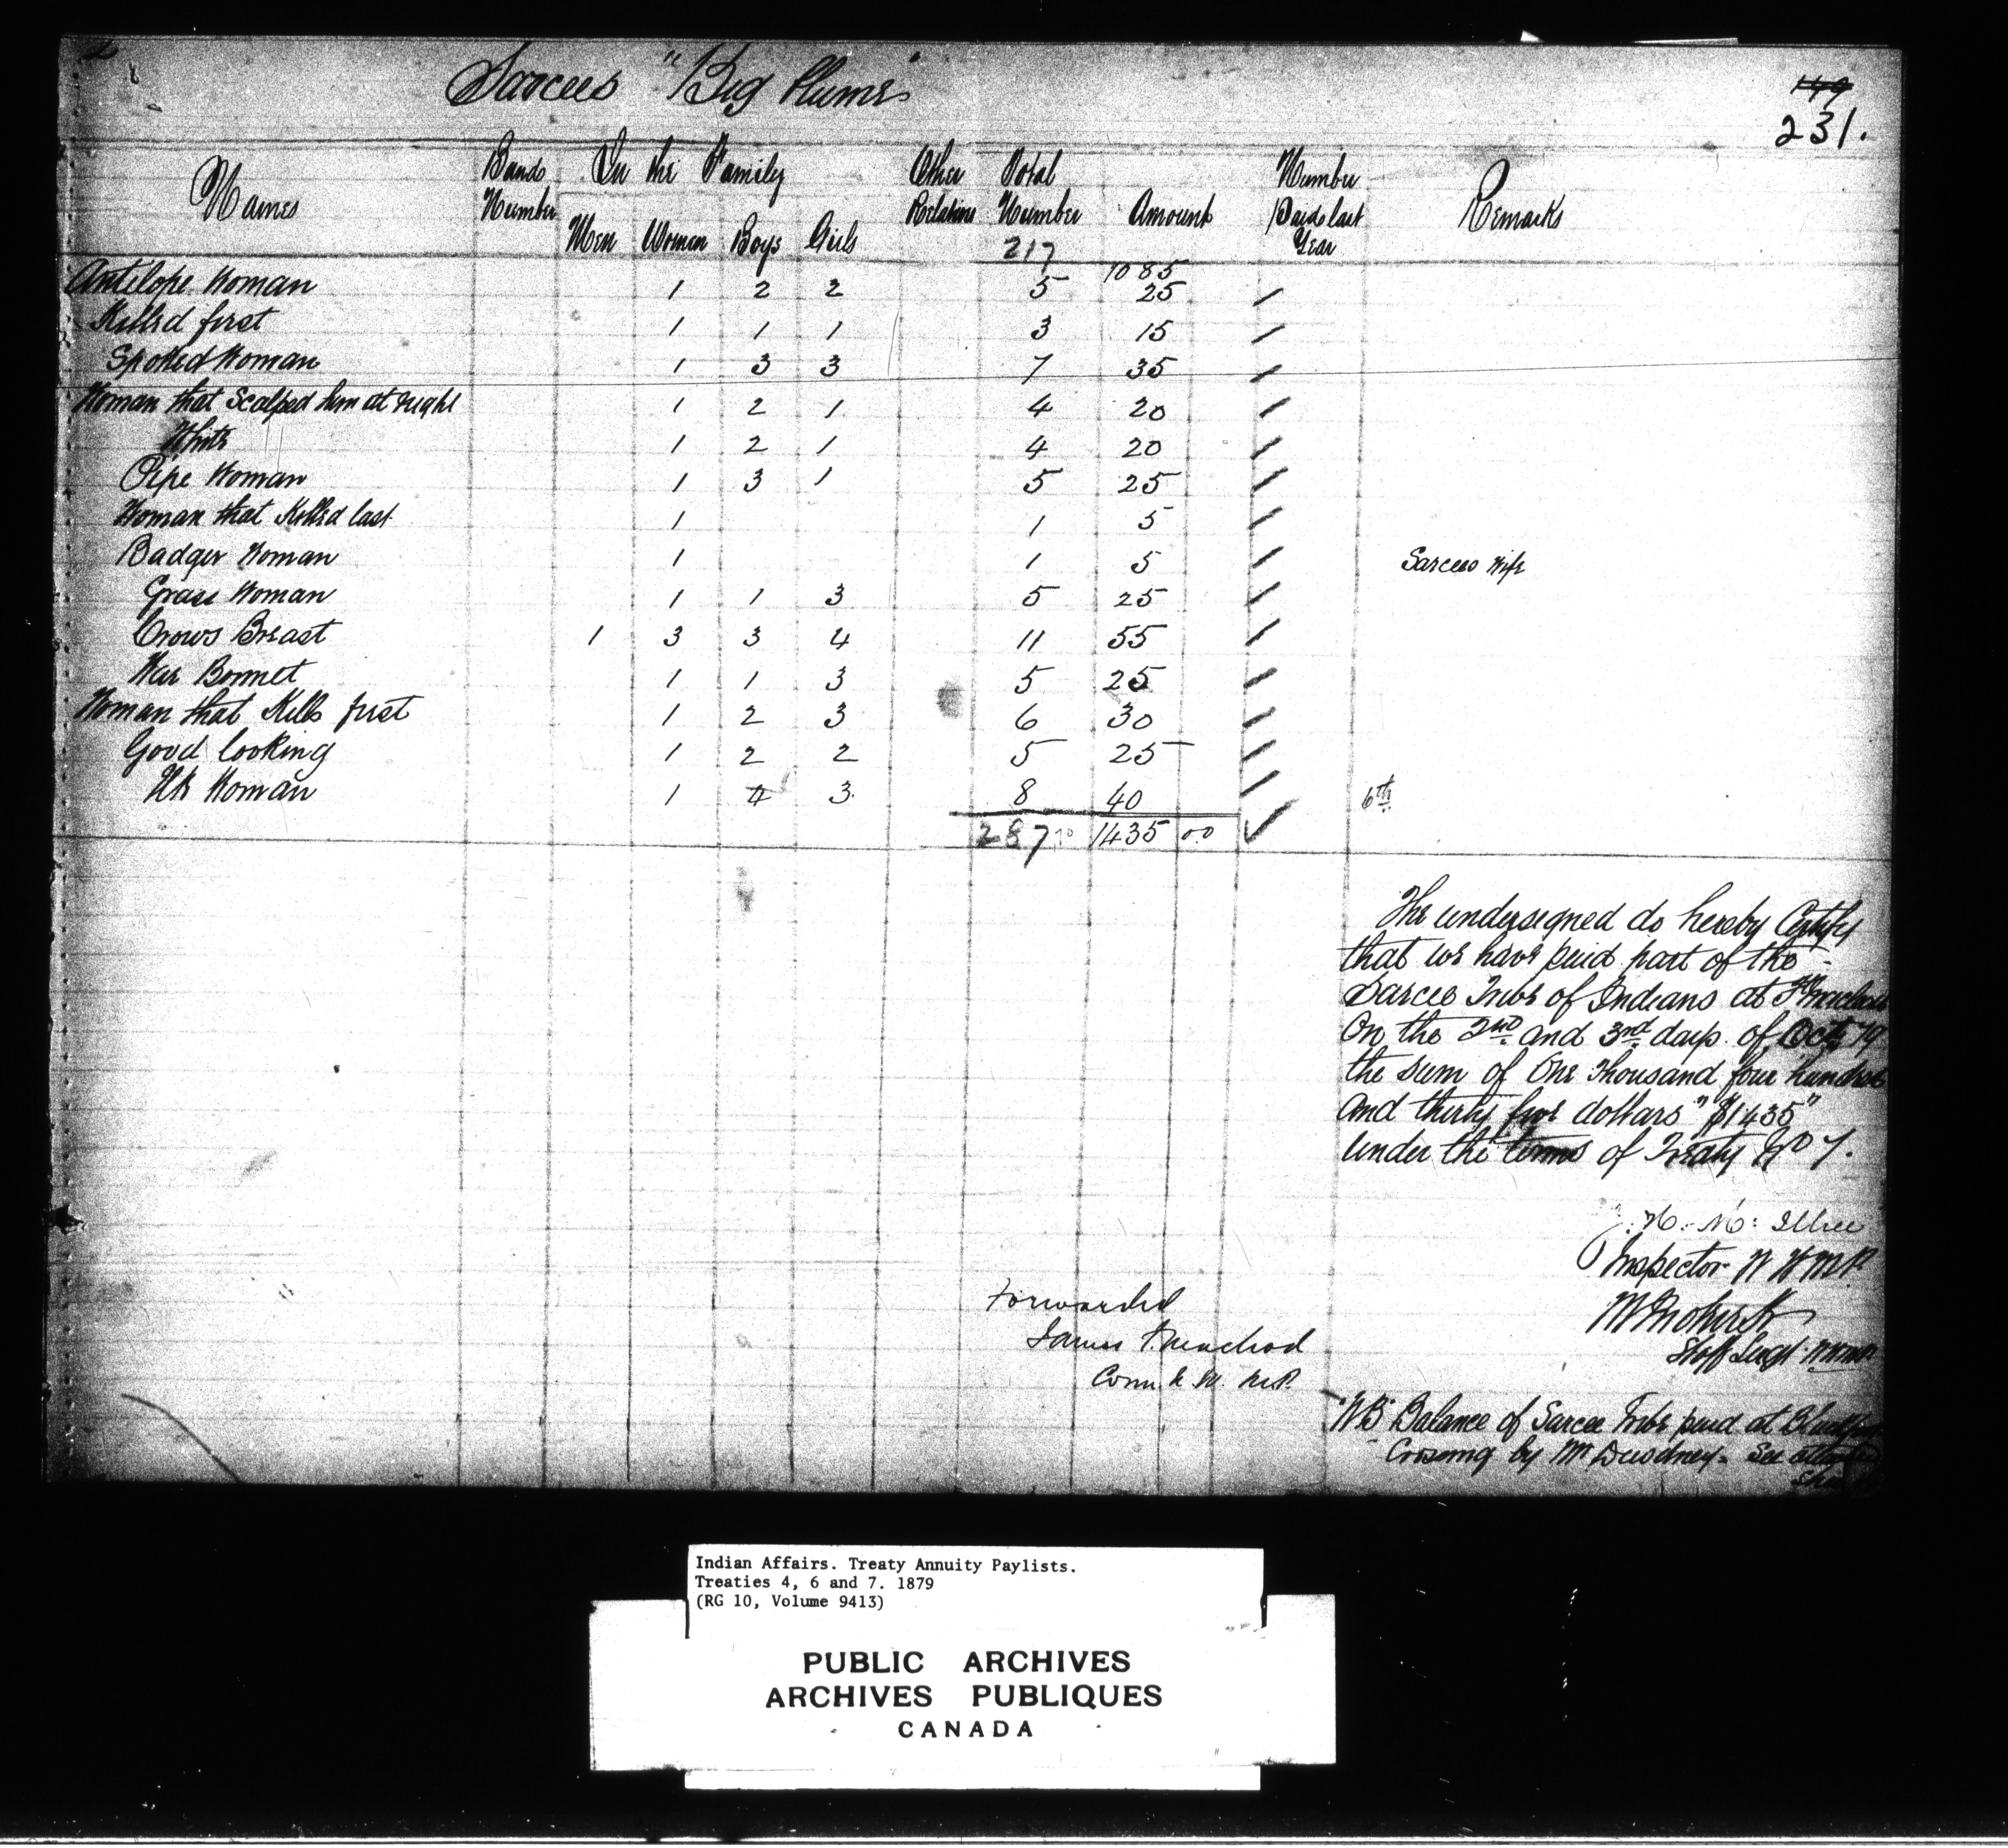 Sarcees "Big Plume"
149
231.
Names Bands Number In the Family Men Women Boys Girls Other Relatives Total Number Amount Number Paid last Year Remarks
217 1085
Antelope Woman 1 2 2 5 25 /
Killed first 1 1 1 3 15 /
Spotted Woman 1 3 3 7 35 /
Woman that Scalped him at night 1 2 1 4 20 /
White 1 2 1 4 20 /
Pipe Woman 1 3 1 5 25 /
Woman that Killed last 1 1 5 /
Badger Woman 1 1 5 / Sarcees Wife
Grass Woman 1 1 3 5 25 /
Crows Breast 1 3 3 4 11 55 /
War Bonnet 1 1 3 5 25 /
Woman that Kills first 1 2 3 6 30 /
Good looking 1 2 2 5 25 /
Woman 1 4 3 8 40 / 6th
287 1435 00
The undersigned do hereby Certify
that we have paid part of the
Sarcee Tribe of Indians at Ft Macleod
On the 2nd and 3rd days of Oct 79
the sum of One Thousand four hundred
and thirty five dollars "$1435"
under the terms of Treaty No 7.
Inspector N W M P.
Staff Sergt NWMP
Forwarded
James F. Macleod
Comr. N. W. M.P.
"NB" Balance of Sarcee Tribe paid at Blackfoot
Crossing by Mr Dewdney. See
Indian Affairs. Treaty Annuity Paylists.
Treaties 4, 6 and 7. 1879
(RG 10, Volume 9413)
PUBLIC ARCHIVES
ARCHIVES PUBLIQUES
CANADA